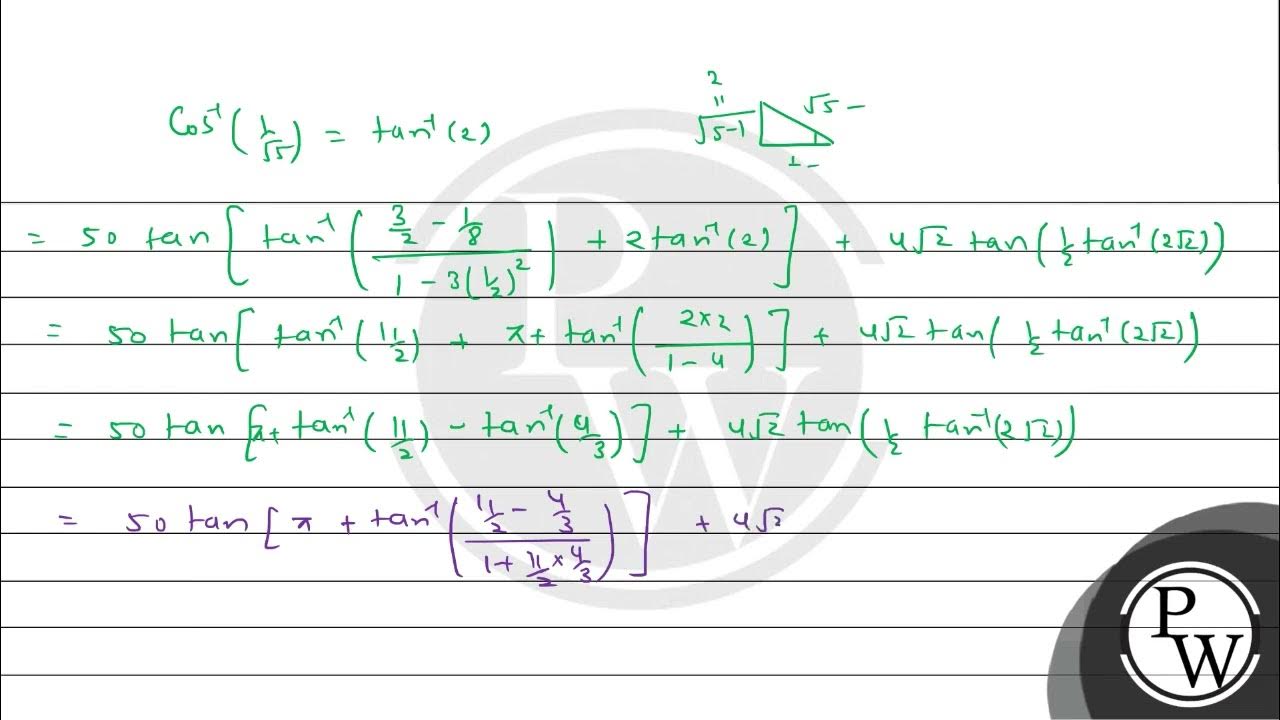 Cos⁻¹(1/√5) = tan⁻¹(2)
2
॥
√5-1
√5 –
1 –
= 50 tan[ tan⁻¹( (3/2 - 1/8) / (1 - 3(1/2)²) ) + 2tan⁻¹(2) ] + 4√2 tan(1/2 tan⁻¹(2√2))
= 50 tan[ tan⁻¹(11/2) + π + tan⁻¹( (2×2) / (1-4) ) ] + 4√2 tan(1/2 tan⁻¹(2√2))
= 50 tan[π + tan⁻¹(11/2) - tan⁻¹(4/3)] + 4√2 tan(1/2 tan⁻¹(2√2))
= 50 tan[ π + tan⁻¹( (11/2 - 4/3) / (1 + 11/2 × 4/3) ) ] + 4√2
P
W
P
W